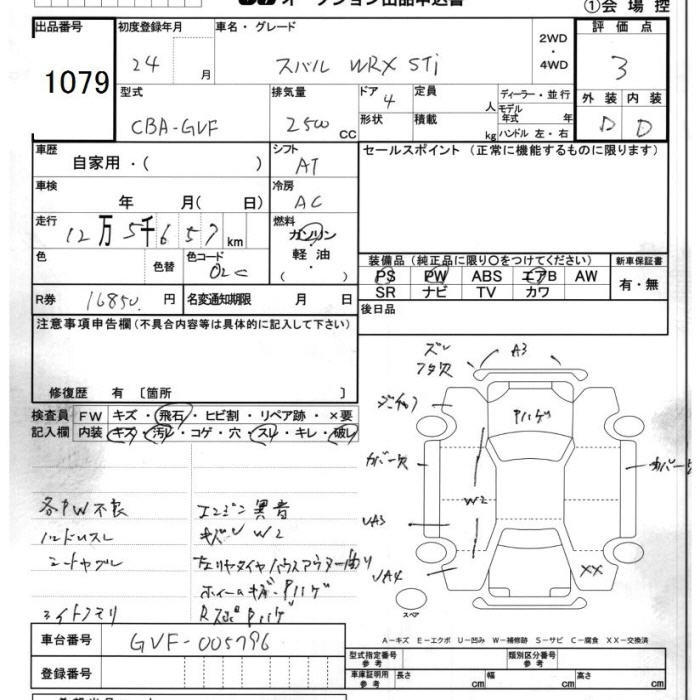 オークション出品申込書
①会場控
出品番号 1079
初度登録年月 24 月
車名・グレード スバル WRX STi
2WD ・ 4WD
評価点 3
外装 D 内装 D
型式 CBA-GVF
排気量 2500 CC
ドア 4
形状
定員 人
積載 kg
ディーラー・並行
モデル年式 年
ハンドル 左・右
車歴 自家用・( )
シフト AT
セールスポイント(正常に機能するものに限ります)
車検 年 月( 日)
冷房 AC
走行 12万5千657 km
燃料 ガソリン・軽油・( )
色 色替 色コード 02C
装備品(純正品に限り○をつけてください) 新車保証書
PS PW ABS エアB AW 有・無
SR ナビ TV カワ
R券 16850 円 名変通知期限 月 日
後日品
注意事項申告欄(不具合内容等は具体的に記入して下さい)
修復歴 有 〔箇所 〕
検査員記入欄 FW キズ・飛石・ヒビ割・リペア跡・×要
内装 キズ・汚レ・コゲ・穴・スレ・キレ・破レ
各PW不良
ハンドルスレ
シートヤブレ
ライトクモリ
エンジン異音
W2
ホイールキズ・Pハゲ
ズレ
フタ欠
A3
Pハゲ
カバー欠
カバー欠
W2
UA3
UA4
XX
スペア
A－キズ E－エクボ U－凹み W－補修跡 S－サビ C－腐食 XX－交換済
車台番号 GVF-005796
登録番号
型式指定番号 参考 類別区分番号 参考
車庫証明用 参考 長さ cm 幅 cm 高さ cm